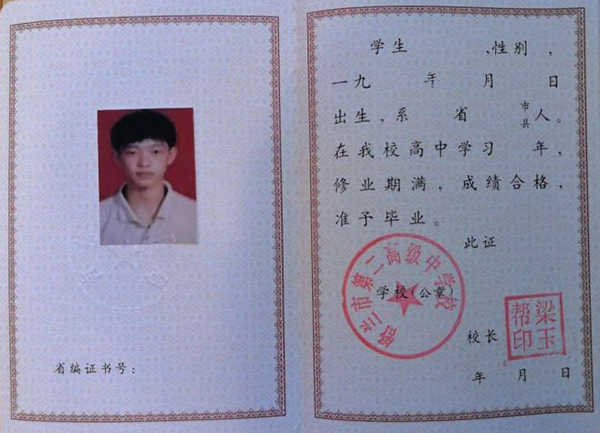 省编证书号：
学生 、性别 ，
一九 年 月 日
出生，系 省 市县 人。
在我校高中学习 年，
修业期满，成绩合格，
准予毕业。
此证
市第二高级中学校
学校（公章）
梁玉帮印
校长
年 月 日